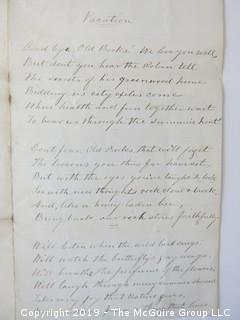 Vacation
Good bye, Old Books! We love you well,
But don't you hear the Robin tell
The secrets of his greenwood home
Bidding us city exiles come
Where health and fun together wait
To bear us through the summer's heat.
Don't fear, Old Books, that we'll forget
The lessons you thus far have set.
But with the eyes you've taught to look
for with new thoughts rock, cloud &
And, like a honey laden bee,
Bring back our rich stores faithfully.
We'll listen when the wild bird sings.
We'll watch the butterfly's wings.
We'll breathe the perfume of the flowers,
We'll laugh through many summer showers
that Nature gives,
Copyright 2019 - The McGuire Group LLC